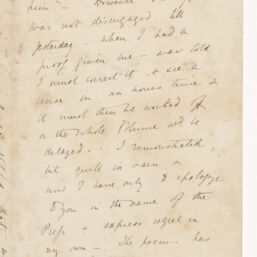 him" - However
was not disengaged till
yesterday - when I had a
proof given me - was told
I must correct it & see a
revise in an hours time &
it must then be worked off
or the whole Volume wd be
delayed. . I remonstrated,
but quite in vain &
now I have only to apologize
to you in the name of the
Press & express regret in
my own - The poem has